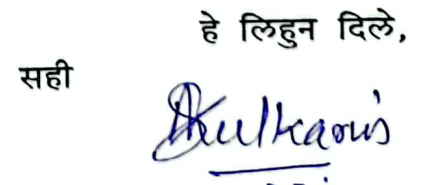 हे लिहुन दिले,
सही
Dkulkarni